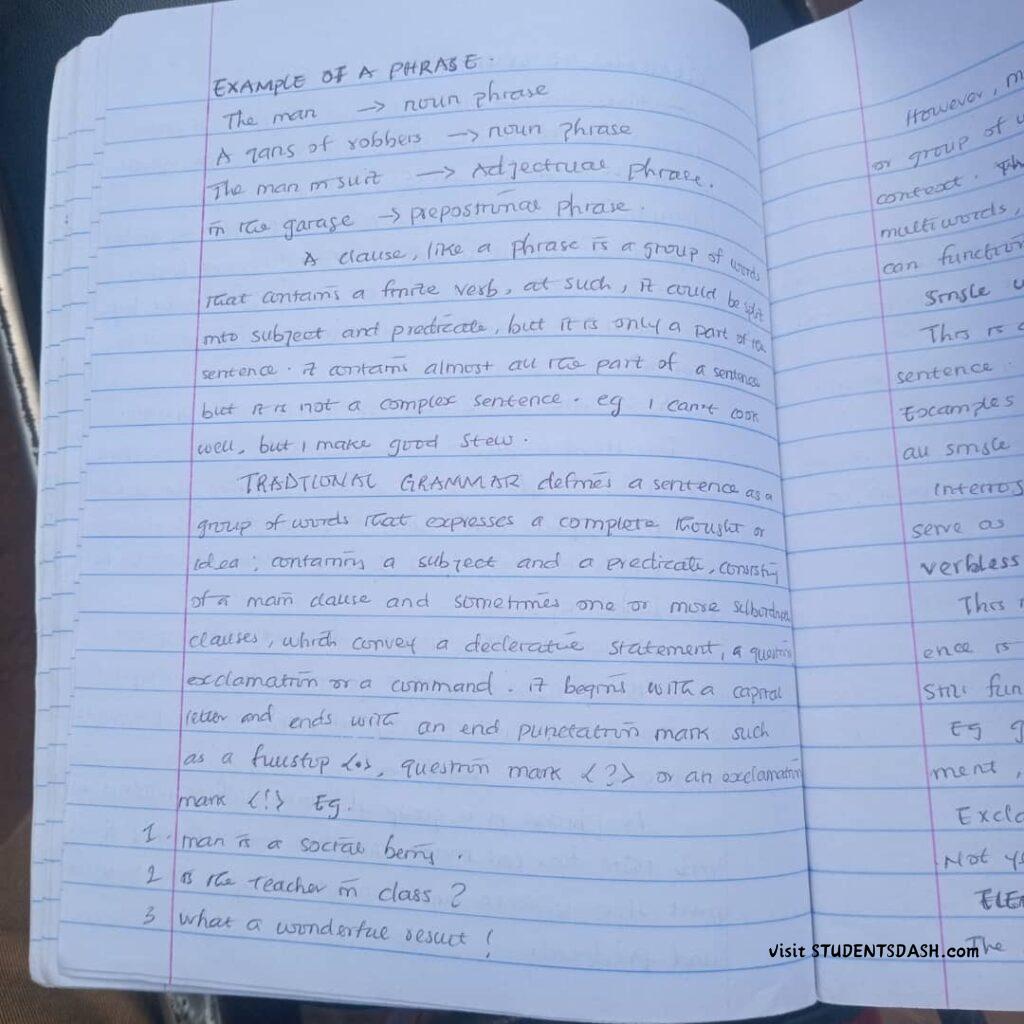 EXAMPLE OF A PHRASE.
The man → noun phrase
A gans of robbers → noun phrase
The man in suit → Adjectival phrase.
in the garage → prepostional phrase.
A clause, like a phrase is a group of words
that contains a finite verb, at such, it could be split
into subject and predicate, but it is only a part of the
sentence. it contains almost all the part of a sentence
but it is not a complex sentence. eg I can't cook
well, but I make good stew.
TRADTIONAL GRAMMAR defines a sentence as a
group of words that expresses a complete thought or
idea; containing a subject and a predicate, consisting
of a main clause and sometimes one or more
clauses, which convey a declerative statement, a question
exclamation or a command. it begins with a capital
letter and ends with an end punctation mark such
as a fullstop <.>, question mark <?> or an exclamation
mark <!> Eg.
1. man is a social being.
2 is the teacher in class?
3 what a wonderful result!
However, m
or group of w
context. Th
multiwords,
can function
Single w
This is
sentence
Examples
all single
Interrog
serve as
verbless
This
ence is
still fun
Eg g
ment,
Excla
Not y
ELE
The
visit STUDENTSDASH.com